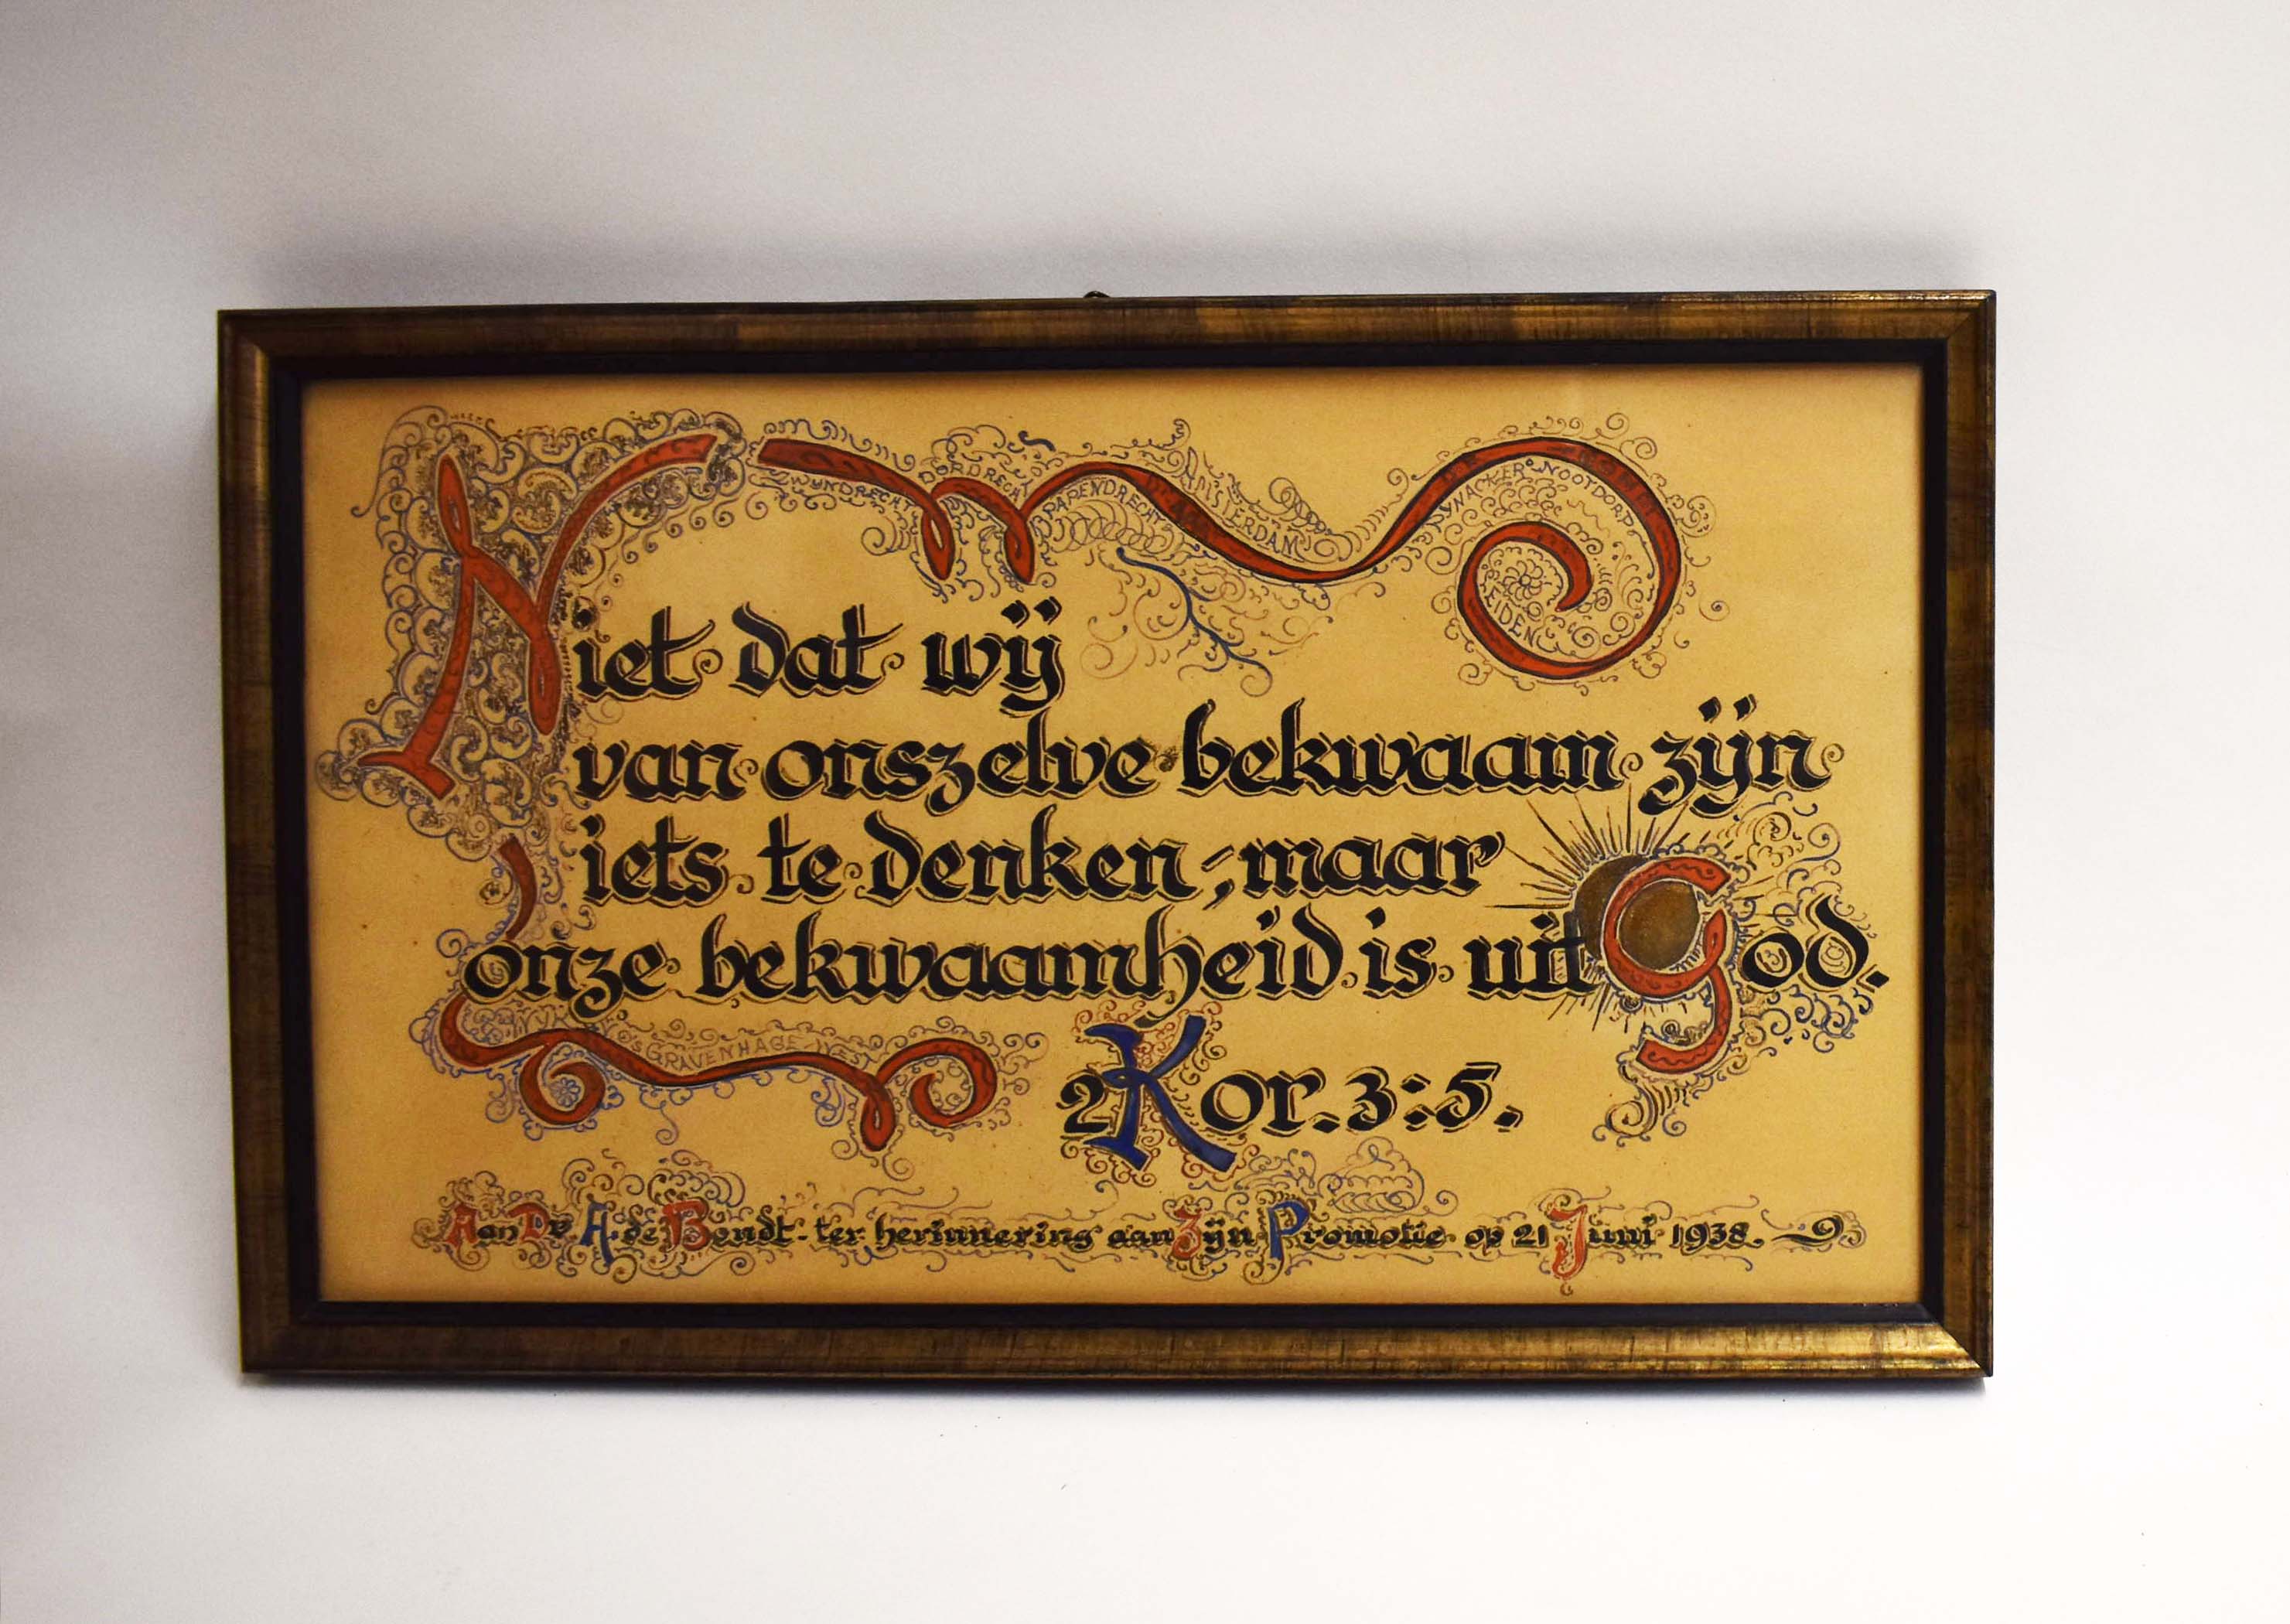 ZWYNDRECHT
DORDRECHT
PAPENDRECHT
AMSTERDAM
PYNACKER NOOTDORP
LEIDEN
Niet dat wij
van onszelve bekwaam zijn
iets te denken, maar
onze bekwaamheid is uit God.
'S GRAVENHAGE-WEST
2 Kor. 3:5.
Aan Dr. A. de Bondt - ter herinnering aan Zijn Promotie op 21 Juni 1938.